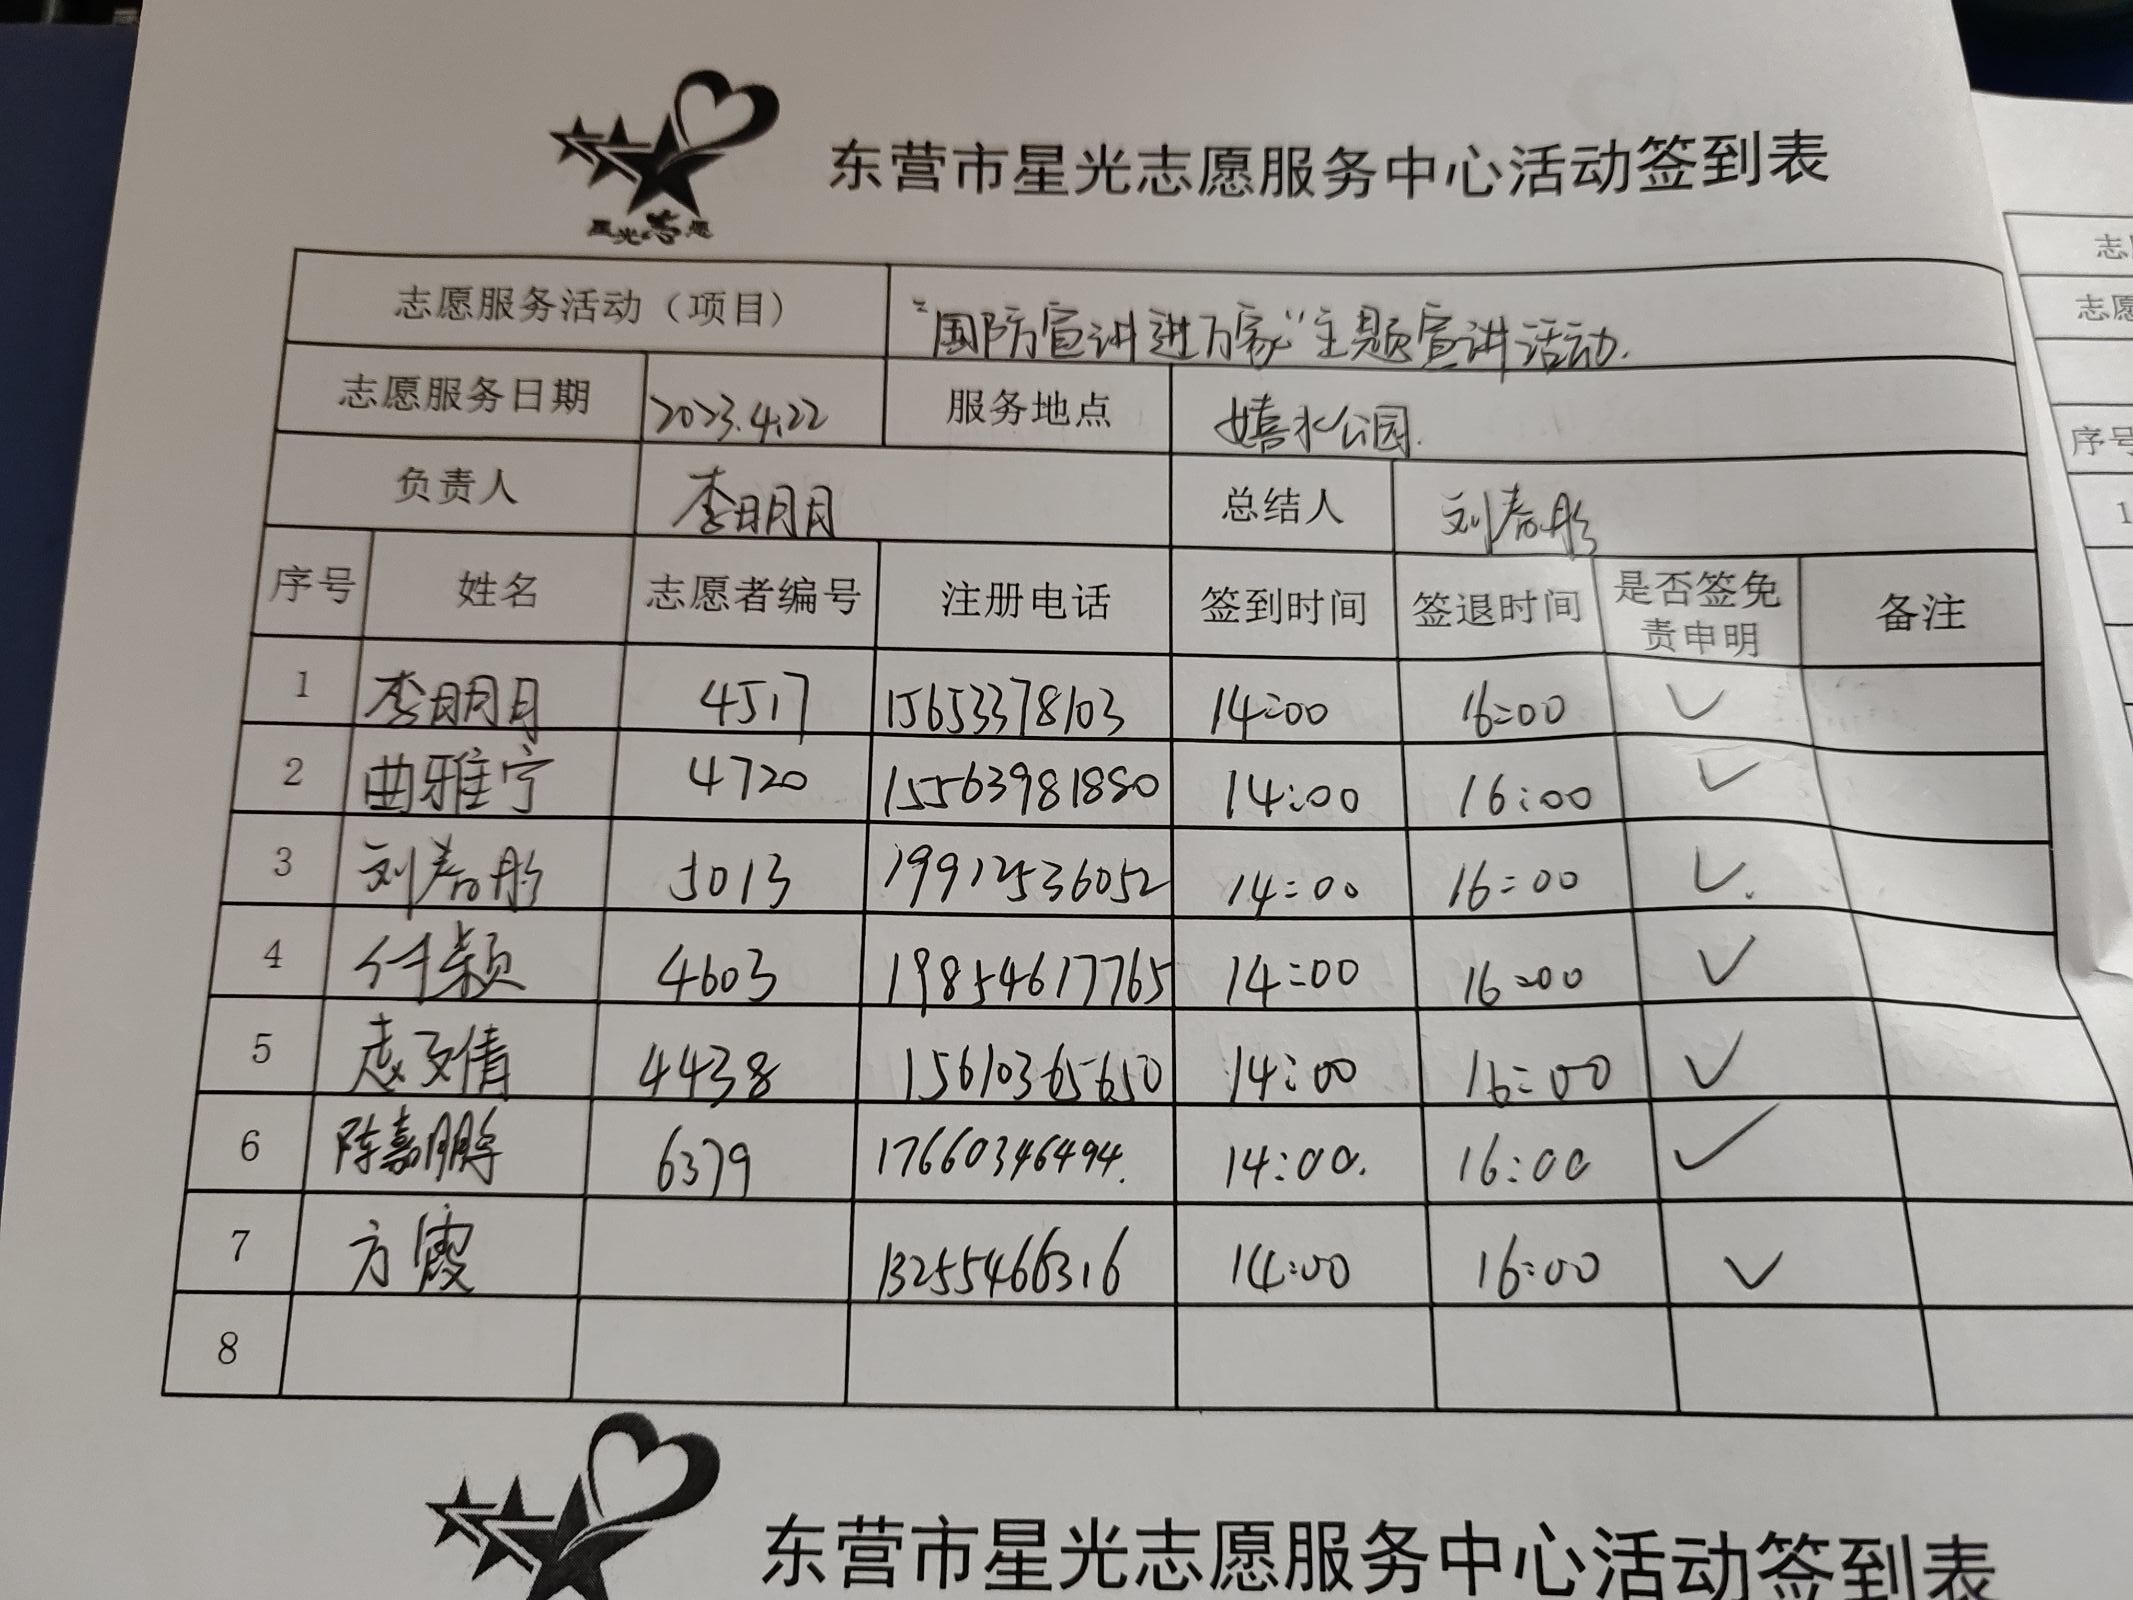 东营市星光志愿服务中心活动签到表
星光志愿
志愿服务活动（项目） “国防宣讲进万家”主题宣讲活动.
志愿服务日期 2023.4.22 服务地点 嬉水公园.
负责人 李明月 总结人 刘春彤
序号 姓名 志愿者编号 注册电话 签到时间 签退时间 是否签免责申明 备注
1 李明月 4517 15653378103 14:00 16:00 ✓
2 曲雅宁 4720 15563981880 14:00 16:00 ✓
3 刘春彤 5013 19912536052 14:00 16:00 ✓
4 付颖 4603 19854617765 14:00 16:00 ✓
5 赵文倩 4438 15610365650 14:00 16:00 ✓
6 陈嘉鹏 6379 17660346494. 14:00. 16:00 ✓
7 方霞 13255466316 14:00 16:00 ✓
8
东营市星光志愿服务中心活动签到表
志愿
序号
1